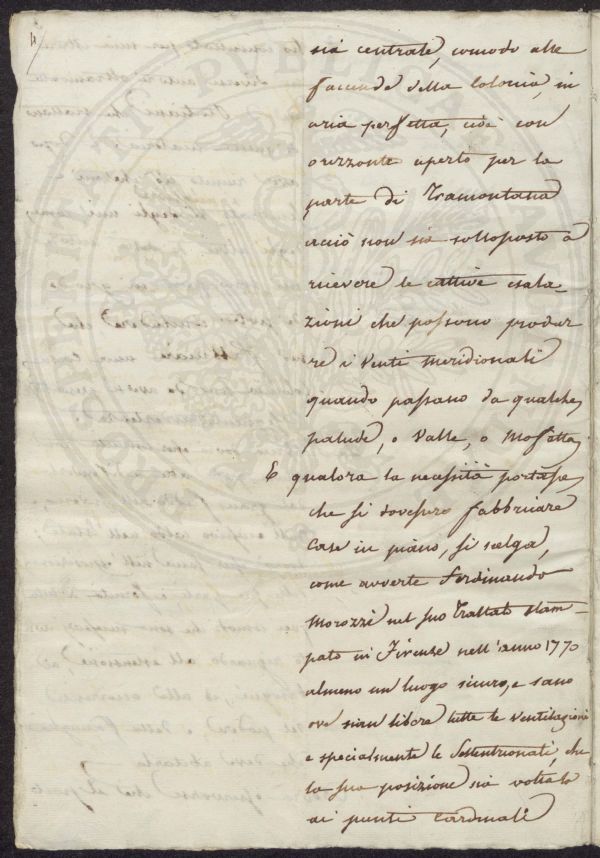 4
sia centrale, comodo alle
faccende della Colonia, in
aria perfetta, cioè con
orizzonte aperto per la
parte di Tramontana
acciò non sia sottoposto a
ricevere le cattive esala-
zioni che possono produr
re i Venti Meridionali
quando passano da qualche
palude, o Valle, o Mofetta
E qualora la necessità portasse
che si dovessero fabbricare
Case in piano, si scelga,
come avverte Ferdinando
Morozzi nel suo Trattato stam-
pato in Firenze nell'anno 1770
almeno un luogo sicuro, e sano
ove sian libere tutte le ventilazioni
e specialmente le Settentrionali, che
la sua posizione sia voltata
ai punti Cardinali